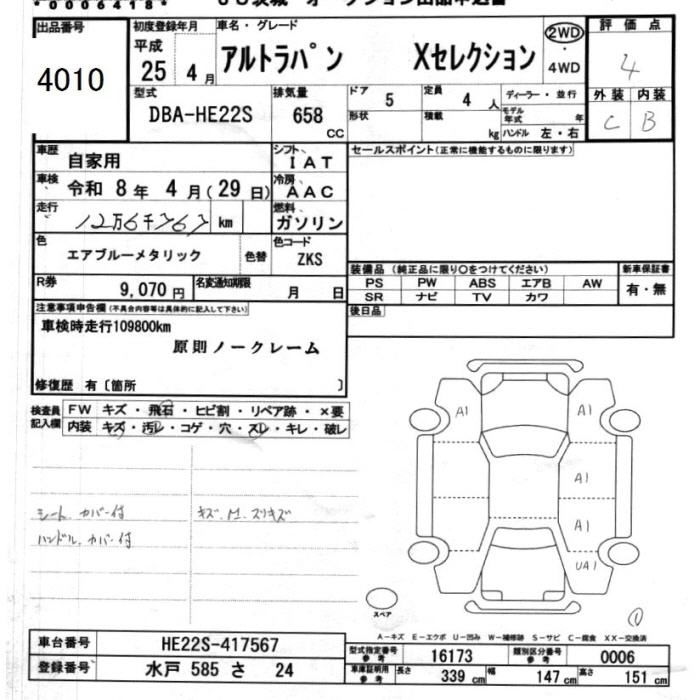 *0006418*
出品番号
4010
初度登録年月
平成
25 4月
車名・グレード
アルトラパン Xセレクション
2WD
・
4WD
評価点
4
外装 内装
C B
型式
DBA-HE22S
排気量
658
CC
ドア
5
定員
4 人
ディーラー・並行
形状
積載
kg
モデル年式
年
ハンドル 左・右
車歴
自家用
シフト
IAT
セールスポイント(正常に機能するものに限ります)
車検
令和 8年 4月(29日)
冷房
AAC
走行
km
燃料
ガソリン
色
エアブルーメタリック
色替
色コード
ZKS
R券
9,070円
名変通知期限
月 日
装備品 (純正品に限り○をつけてください)
新車保証書
PS PW ABS エアB AW
SR ナビ TV カワ
有・無
後日品
注意事項申告欄(不具合内容等は具体的に記入して下さい)
車検時走行109800km
原則ノークレーム
修復歴 有〔箇所 〕
検査員記入欄
FW キズ・飛石・ヒビ割・リペア跡・×要
内装 キズ・汚レ・コゲ・穴・スレ・キレ・破レ
シート、カバー付
ハンドル、カバー付
キズ、M、スリキズ
A1 A1
A1
A1
UA1
スペア
A-キズ E-エクボ U-凹み W-補修跡 S-サビ C-腐食 XX-交換済
車台番号
HE22S-417567
登録番号
水戸 585 さ 24
型式指定番号
参考
16173
類別区分番号
参考
0006
車庫証明用
参考
長さ
339 cm
幅
147 cm
高さ
151 cm